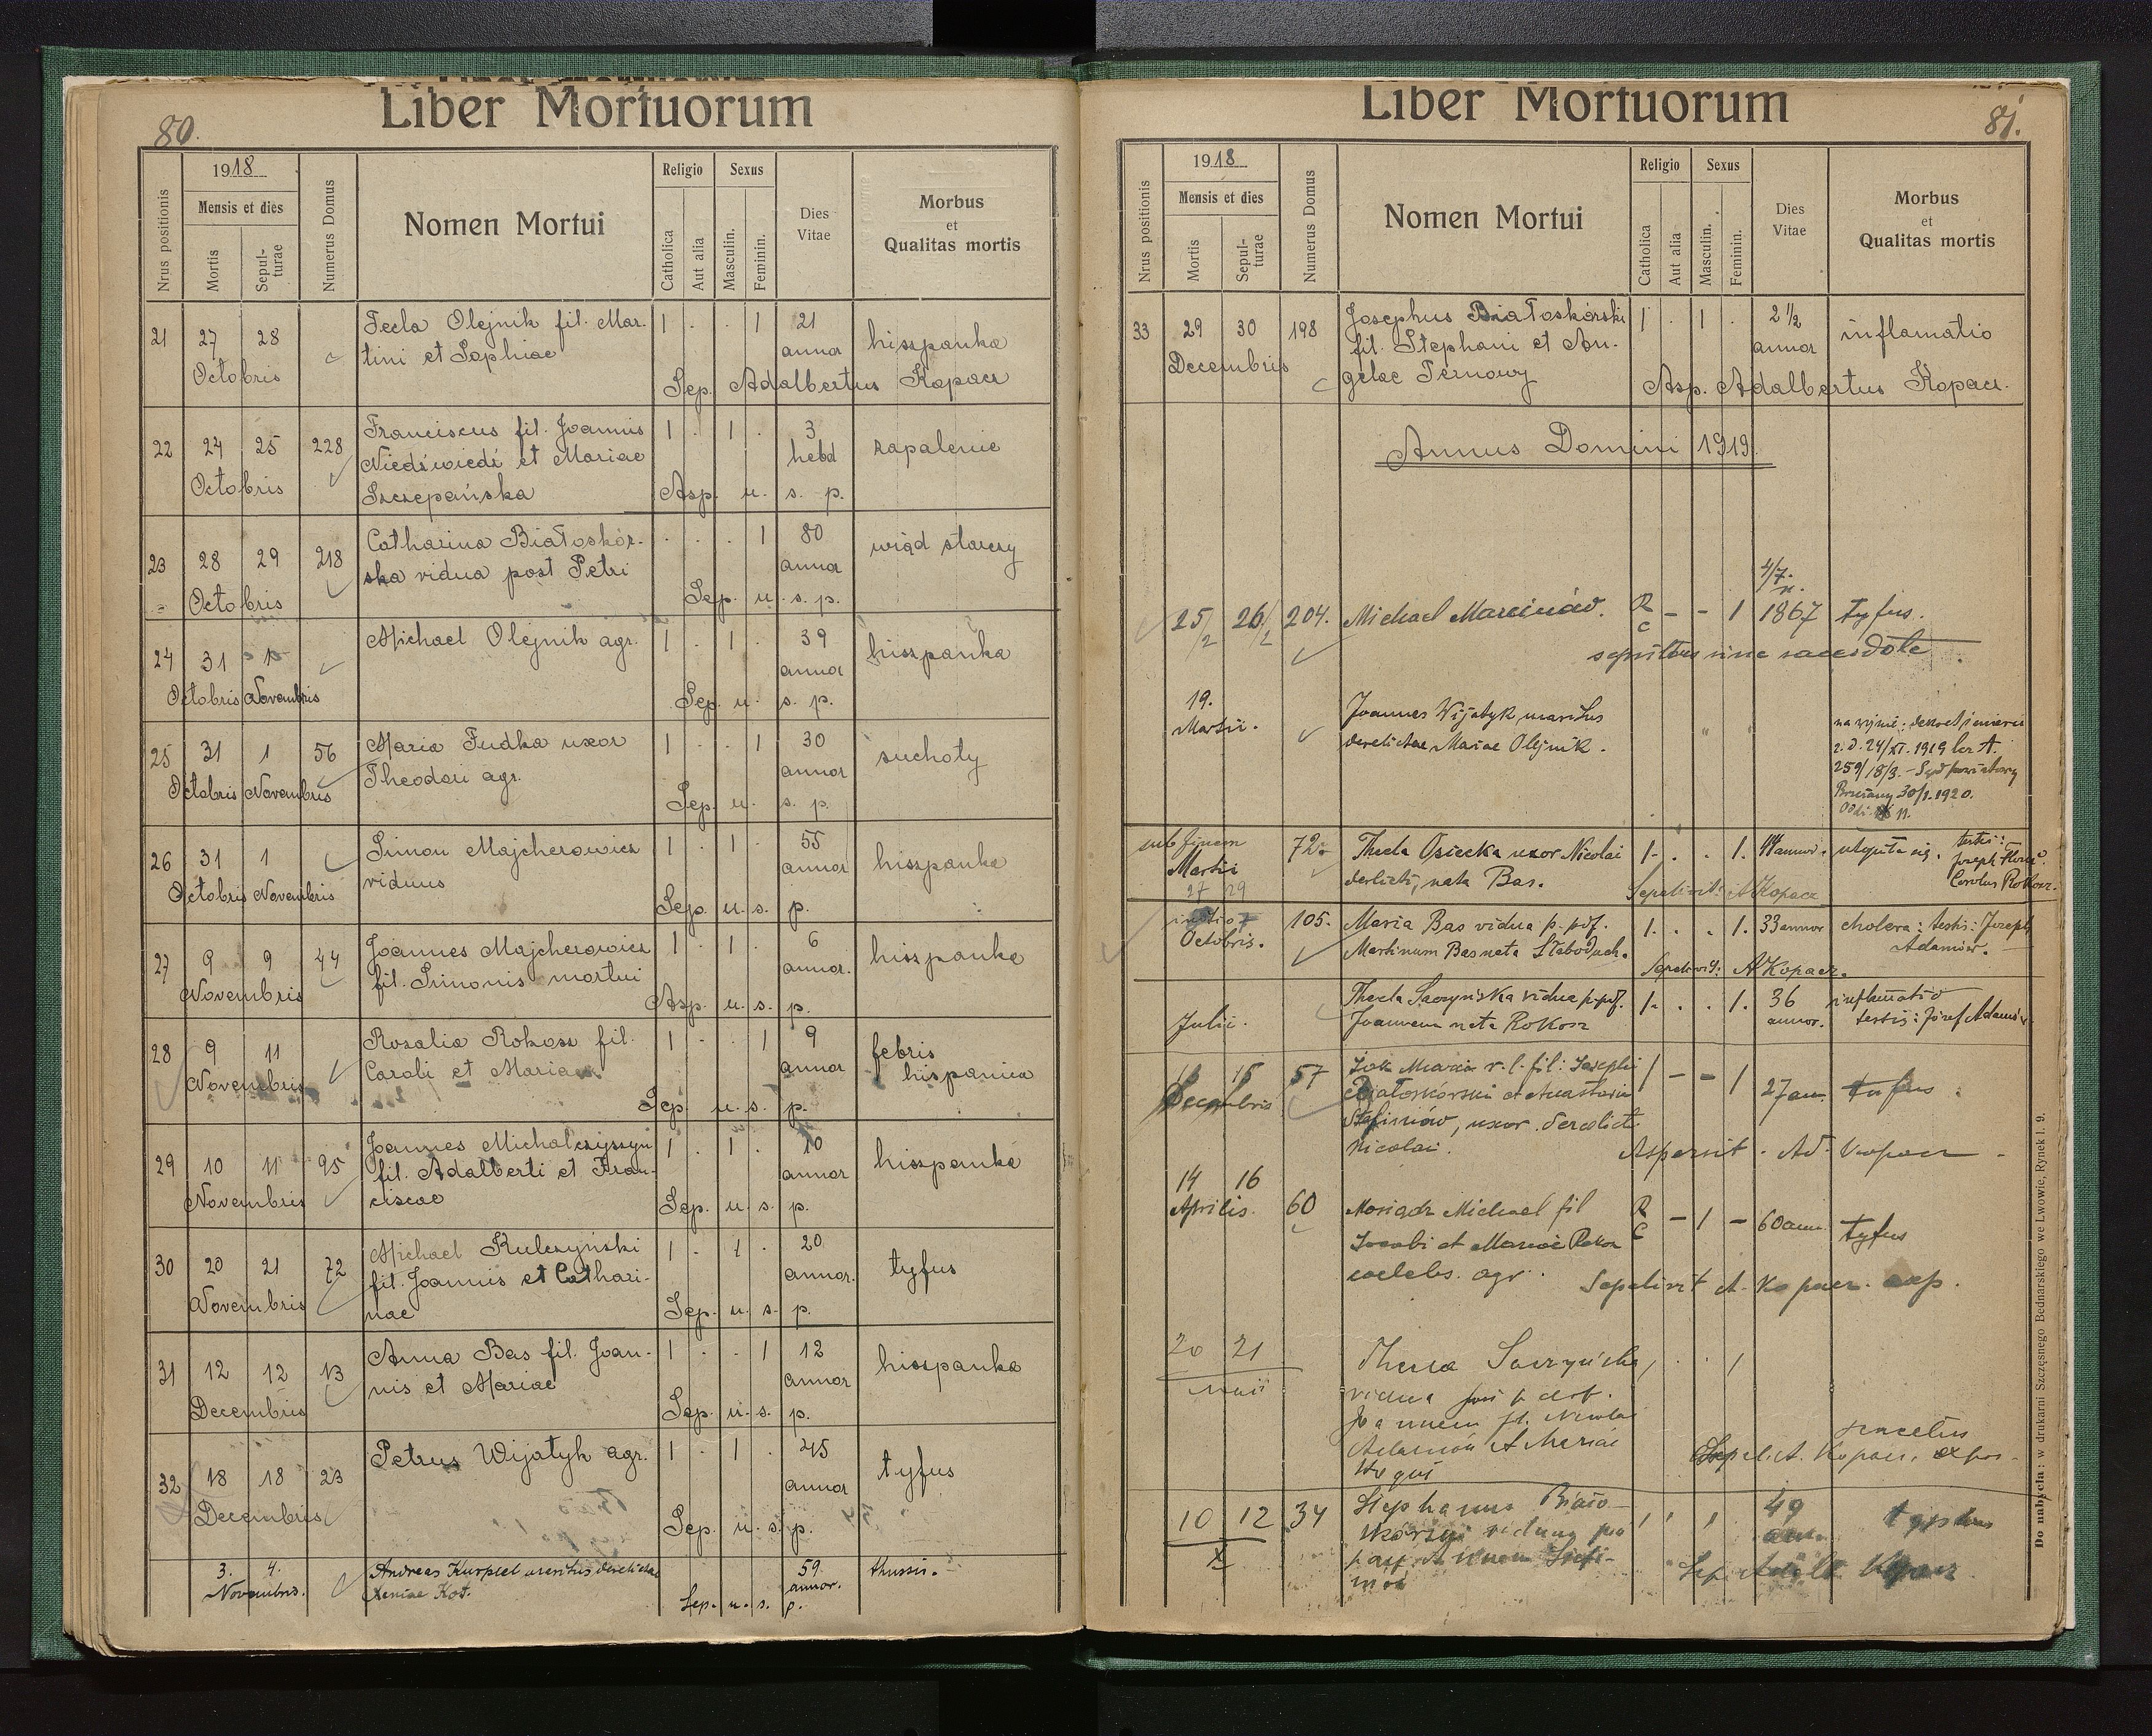 Liber Mortuorum
80.
Nrus positionis
1918
Mensis et dies
Mortis
Sepul-
turae
Numerus Domus
Nomen Mortui
Religio
Catholica
Aut alia
Sexus
Masculin.
Feminin.
Dies
Vitae
Morbus
et
Qualitas mortis
21 27 28 Tecla Olejnik fil. Mar- 1 . . 1 21 hiszpanka
Octobris tini et Sophiae annor
Sep. Adalbertus Kopacz
22 24 25 228 Franciscus fil. Joannis 1 . 1 . 3 zapalenie
Octobris Niedźwiedź et Mariae hebd
Szczepańska Asp. u. s. p.
23 28 29 218 Catharina Białoskór- . . . 1 80 wiąd starczy
Octobris ska vidua post Petri annor
Sep. u. s. p.
24 31 1 Michael Olejnik agr. 1 . 1 . 39 hiszpanka
Octobris Novembris annor
Sep. u. s. p.
25 31 1 56 Maria Fudka uxor 1 . . 1 30 suchoty
Octobris Novembris Theodori agr. annor
Sep. u. s. p.
26 31 1 Simon Majcherowicz 1 . 1 . 55 hiszpanka
Octobris Novembris viduus annor
Sep. u. s. p.
27 9 9 44 Joannes Majcherowicz 1 . 1 . 6 hiszpanka
Novembris fil. Simonis mortui annor.
Asp. u. s. p.
28 9 11 Rozalia Rokosz fil. 1 . . 1 9 febris
Novembris Caroli et Mariae annor hispanica
Sep. u. s. p.
29 10 11 95 Joannes Michalczyszyn 1 . 1 . 10 hiszpanka
Novembris fil. Adalberti et Fran- annor
ciscae Sep. u. s. p.
30 20 21 72 Michael Kulczyński 1 . 1 . 20 tyfus
Novembris fil. Joannis et Cathari- annor.
nae Sep. u. s. p.
31 12 12 13 Anna Bas fil. Joan- 1 . . 1 12 hiszpanka
Decembris nis et Mariae annor
Sep. u. s. p.
32 18 18 23 Petrus Wijatyk agr. 1 . 1 . 45 tyfus
Decembris annor
Sep. u. s. p.
3. 4. Andreas Kurpiel maritus derelictae 59 thussis.
Novembris. Xeniae Kot. annor.
Sep. u. s. p.
Liber Mortuorum
81.
Nrus positionis
1918
Mensis et dies
Mortis
Sepul-
turae
Numerus Domus
Nomen Mortui
Religio
Catholica
Aut alia
Sexus
Masculin.
Feminin.
Dies
Vitae
Morbus
et
Qualitas mortis
33 29 30 198 Josephus Białoskórski 1 . 1 . 2 1/2 inflamatio
Decembris fil. Stephani et An- annor
gelae Ternowy Asp. Adalbertus Kopacz.
Annus Domini 1919.
4/7.
25/2 26/2 204. Michael Marcinów. R C - - 1 1867 tyfus.
sepultus sine sacerdote
19. Joannes Wijatyk maritus
Martii. derelictae Mariae Olejnik.
z. d. 24/XI. 1919 lcz A.
259/18/3. - Sąd powiatowy
Brzeżany 30/1. 1920.
sub finem 72. Thecla Osiecka uxor Nicolai 1. . . 1. 44 annor. testis:
Martii derlicti, nata Bas.
27 29 Sepelivit: A Kopacz
initio 105. Maria Bas vidua p. pdf. 1. . . 1. 33 annor cholera: testis: Joseph
Octobris. Martinum Bas nata Słaboduch. Adamów.
Sepelivit: A Kopacz.
Thecla Saczyńska vidua p. pdf. 1. . . 1. 36 inflamatio
Julii. Joannem nata Rokosz annor. testis: Józef Adamów
15 57 Maria r. l. fil: Josephi 1 - - 1 27 an. tyfus
Decembris Białoskórski et Anastasia
Stefiniów, uxor derelict.
Nicolai. Aspersit Ad. Kopacz
14 16 60 Michael fil R C - 1 - 60 ann. tyfus
Aprilis. Jacobi et Mariae Rokosz
coelebs. agr. Sepelivit A. Kopacz. exp.
20 21 Thecla Saczyńska 1 . . 1
Maii vidua
Joannem fil. Nicolai
Adamów et Mariae
Sepel. A. Kopacz, expos.
10 12 34 Stephanus Biało- 1 . 1 49 typhus
X skórski viduus ann.
Sep. Adalb. Kopacz
Do nabycia: w drukarni Szczęsnego Bednarskiego we Lwowie, Rynek l. 9.